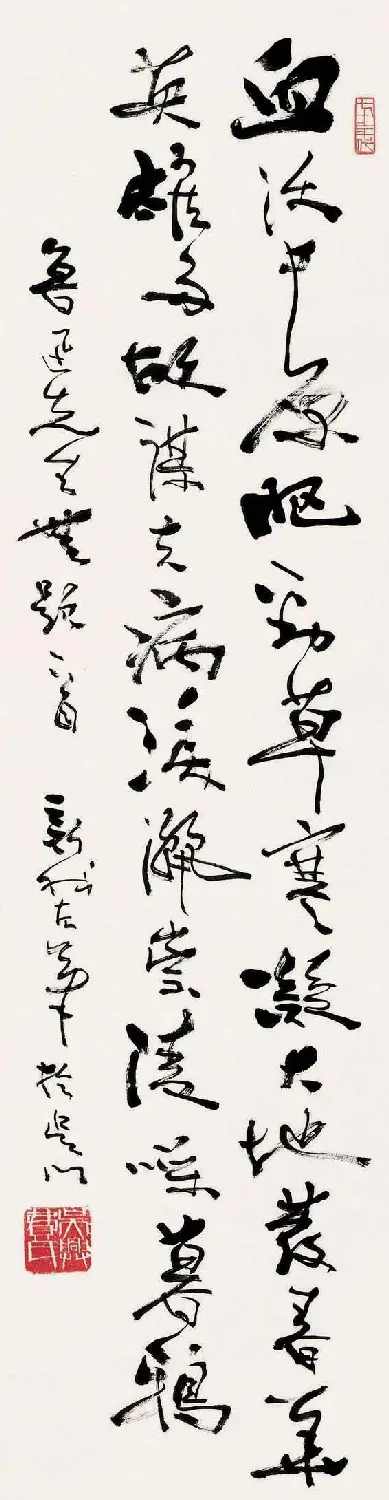 血沃中原肥劲草寒凝大地发春华
英雄多故谋夫病泪洒崇陵噪暮鸦
鲁迅先生无题一首 新我左笔 于吴门